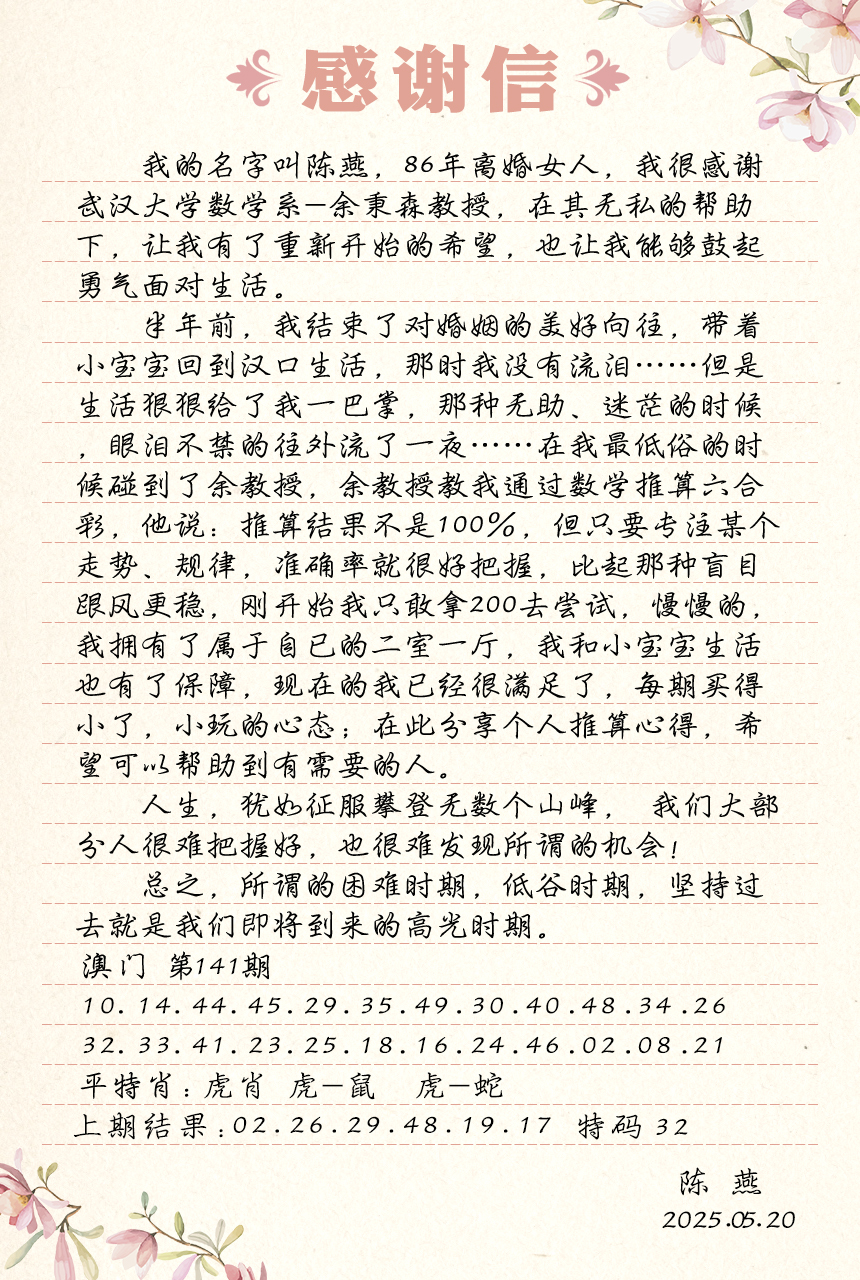 感谢信
我的名字叫陈燕，86年离婚女人，我很感谢
武汉大学数学系—余秉森教授，在其无私的帮助
下，让我有了重新开始的希望，也让我能够鼓起
勇气面对生活。
半年前，我结束了对婚姻的美好向往，带着
小宝宝回到汉口生活，那时我没有流泪……但是
生活狠狠给了我一巴掌，那种无助、迷茫的时候
，眼泪不禁的往外流了一夜……在我最低俗的时
候碰到了余教授，余教授教我通过数学推算六合
彩，他说：推算结果不是100%，但只要专注某个
走势、规律，准确率就很好把握，比起那种盲目
跟风更稳，刚开始我只敢拿200去尝试，慢慢的，
我拥有了属于自已的二室一厅，我和小宝宝生活
也有了保障，现在的我已经很满足了，每期买得
小了，小玩的心态；在此分享个人推算心得，希
望可以帮助到有需要的人。
人生，犹如征服攀登无数个山峰， 我们大部
分人很难把握好，也很难发现所谓的机会！
总之，所谓的困难时期，低谷时期，坚持过
去就是我们即将到来的高光时期。
澳门 第141期
10.14.44.45.29.35.49.30.40.48.34.26
32.33.41.23.25.18.16.24.46.02.08.21
平特肖：虎肖 虎—鼠 虎—蛇
上期结果：02.26.29.48.19.17 特码 32
陈 燕
2025.05.20